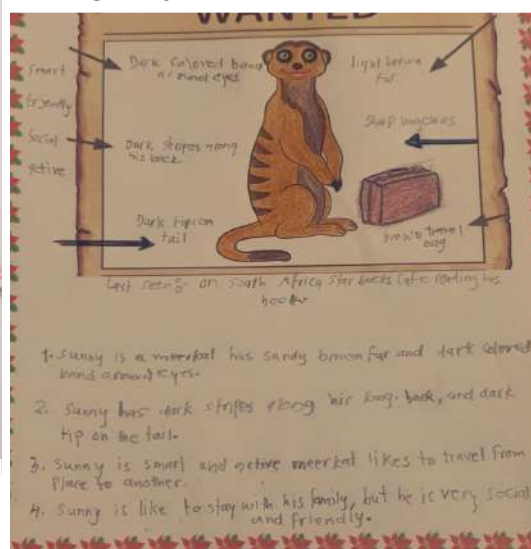 WANTED
Smart
friendly
Social
active
Dark Colored band
around eyes
light brown
fur
Dark stripes along
his back
Sharp long claws
Dark tip on
tail
brown travel
bag
Last seen: on South Africa Starbucks Cafe reading his
book.
1. Sunny is a meerkat has sandy brown fur and dark colored
band around eyes.
2. Sunny has dark stripes along his long back, and dark
tip on the tail.
3. Sunny is smart and active meerkat likes to travel from
place to another.
4. Sunny is like to stay with his family, but he is very social
and friendly.